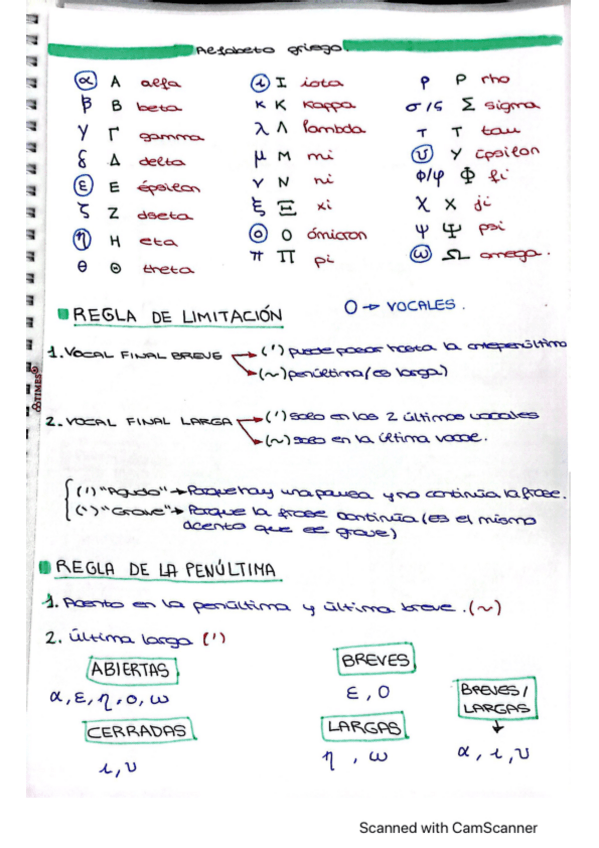 Alfabeto griego.
α A alfa
β B beta
γ Γ gamma
δ Δ delta
ε E épsilon
ζ Z dseta
η H eta
θ Θ theta
ι I iota
κ K kappa
λ Λ lambda
μ M mi
ν N ni
ξ Ξ xi
ο O ómicron
π Π pi
ρ P rho
σ/ς Σ sigma
τ T tau
υ Y ípsilon
φ/φ Φ fi
χ X ji
ψ Ψ psi
ω Ω omega.
O → VOCALES.
REGLA DE LIMITACIÓN
1. VOCAL FINAL BREVE → (') puede pasar hasta la antepenúltima
→ (~) penúltima (es larga)
2. VOCAL FINAL LARGA → (') solo en las 2 últimas vocales
→ (~) solo en la última vocal.
(') "Agudo" → Porque hay una pausa y no continúa la frase.
(`) "Grave" → Porque la frase continúa (es el mismo
acento que es grave)
REGLA DE LA PENÚLTINA
1. Acento en la penúltima y última breve. (~)
2. Última larga (')
ABIERTAS
α, ε, η, ο, ω
CERRADAS
ι, υ
BREVES
ε, ο
LARGAS
η, ω
BREVES/
LARGAS
↓
α, ι, υ
TIMES
Scanned with CamScanner